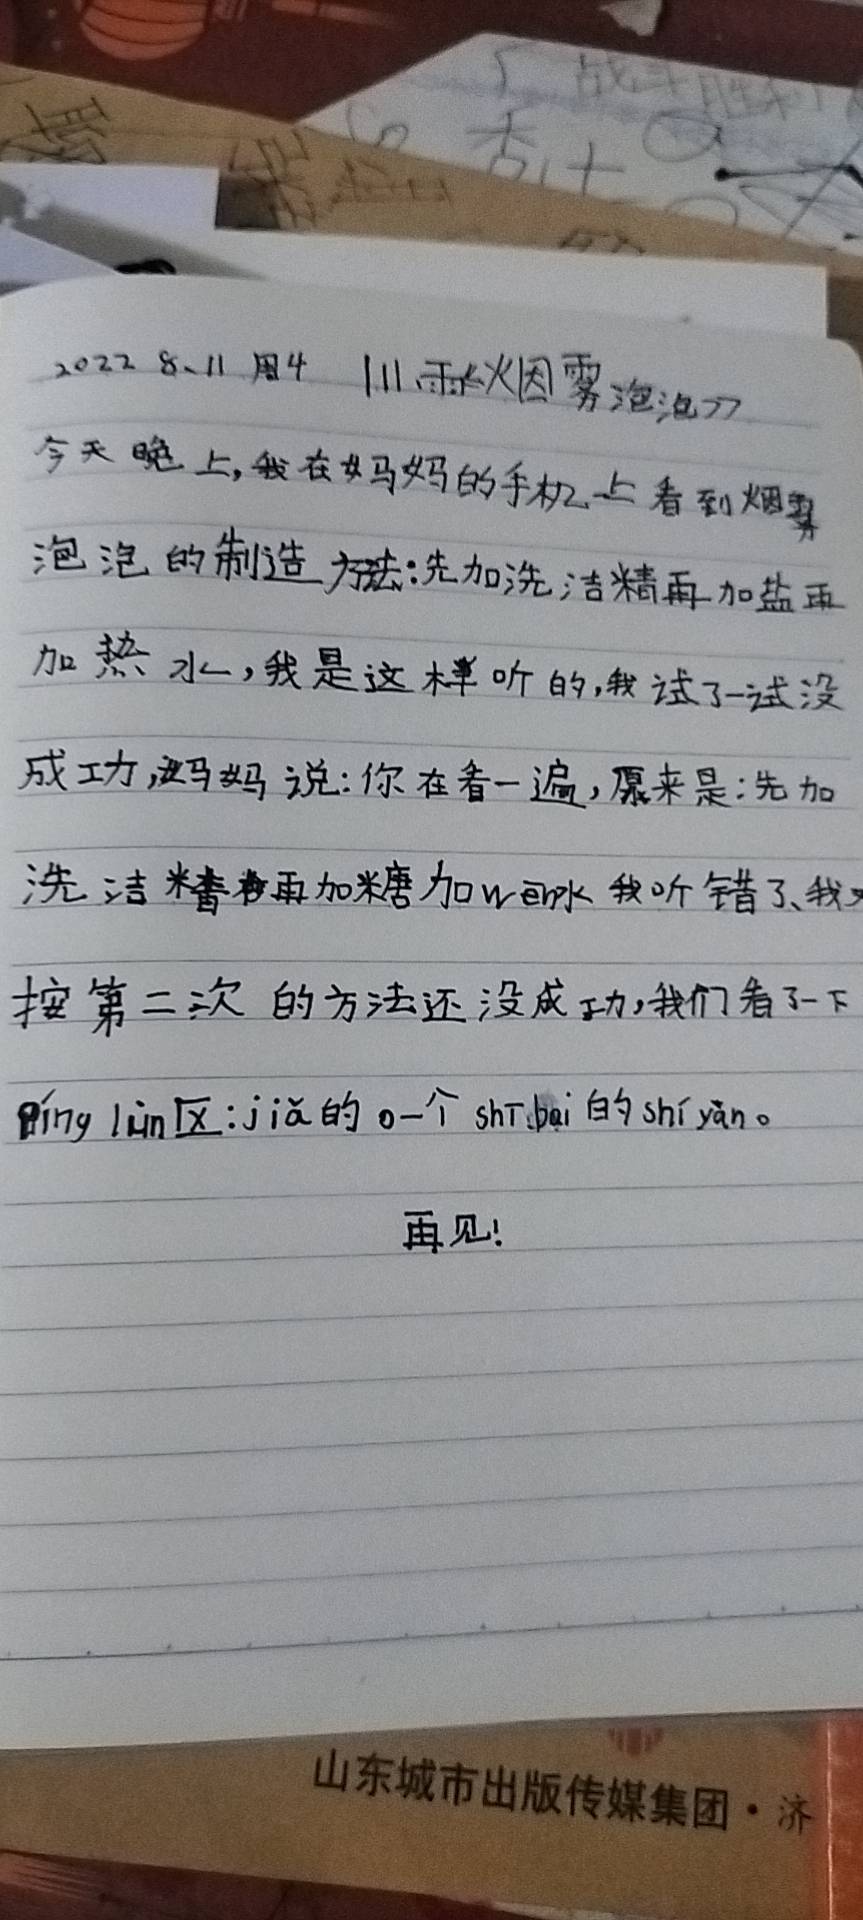 战斗胜利
2022 8.11 周4 烟雾泡泡
今天晚上,我在妈妈的手机上看到烟雾
泡泡的制造方法:先加洗洁精再加盐再
加热水,我是这样听的,我试了一试没
成功,妈妈说:你在看一遍,原来是:先加
洗洁精再加糖加wēn水我听错了、我又
按第二次的方法还没成功,我们看了一下
píng lùn区:jiǎ的。一个shībài的shíyàn。
再见!
山东城市出版传媒集团·济